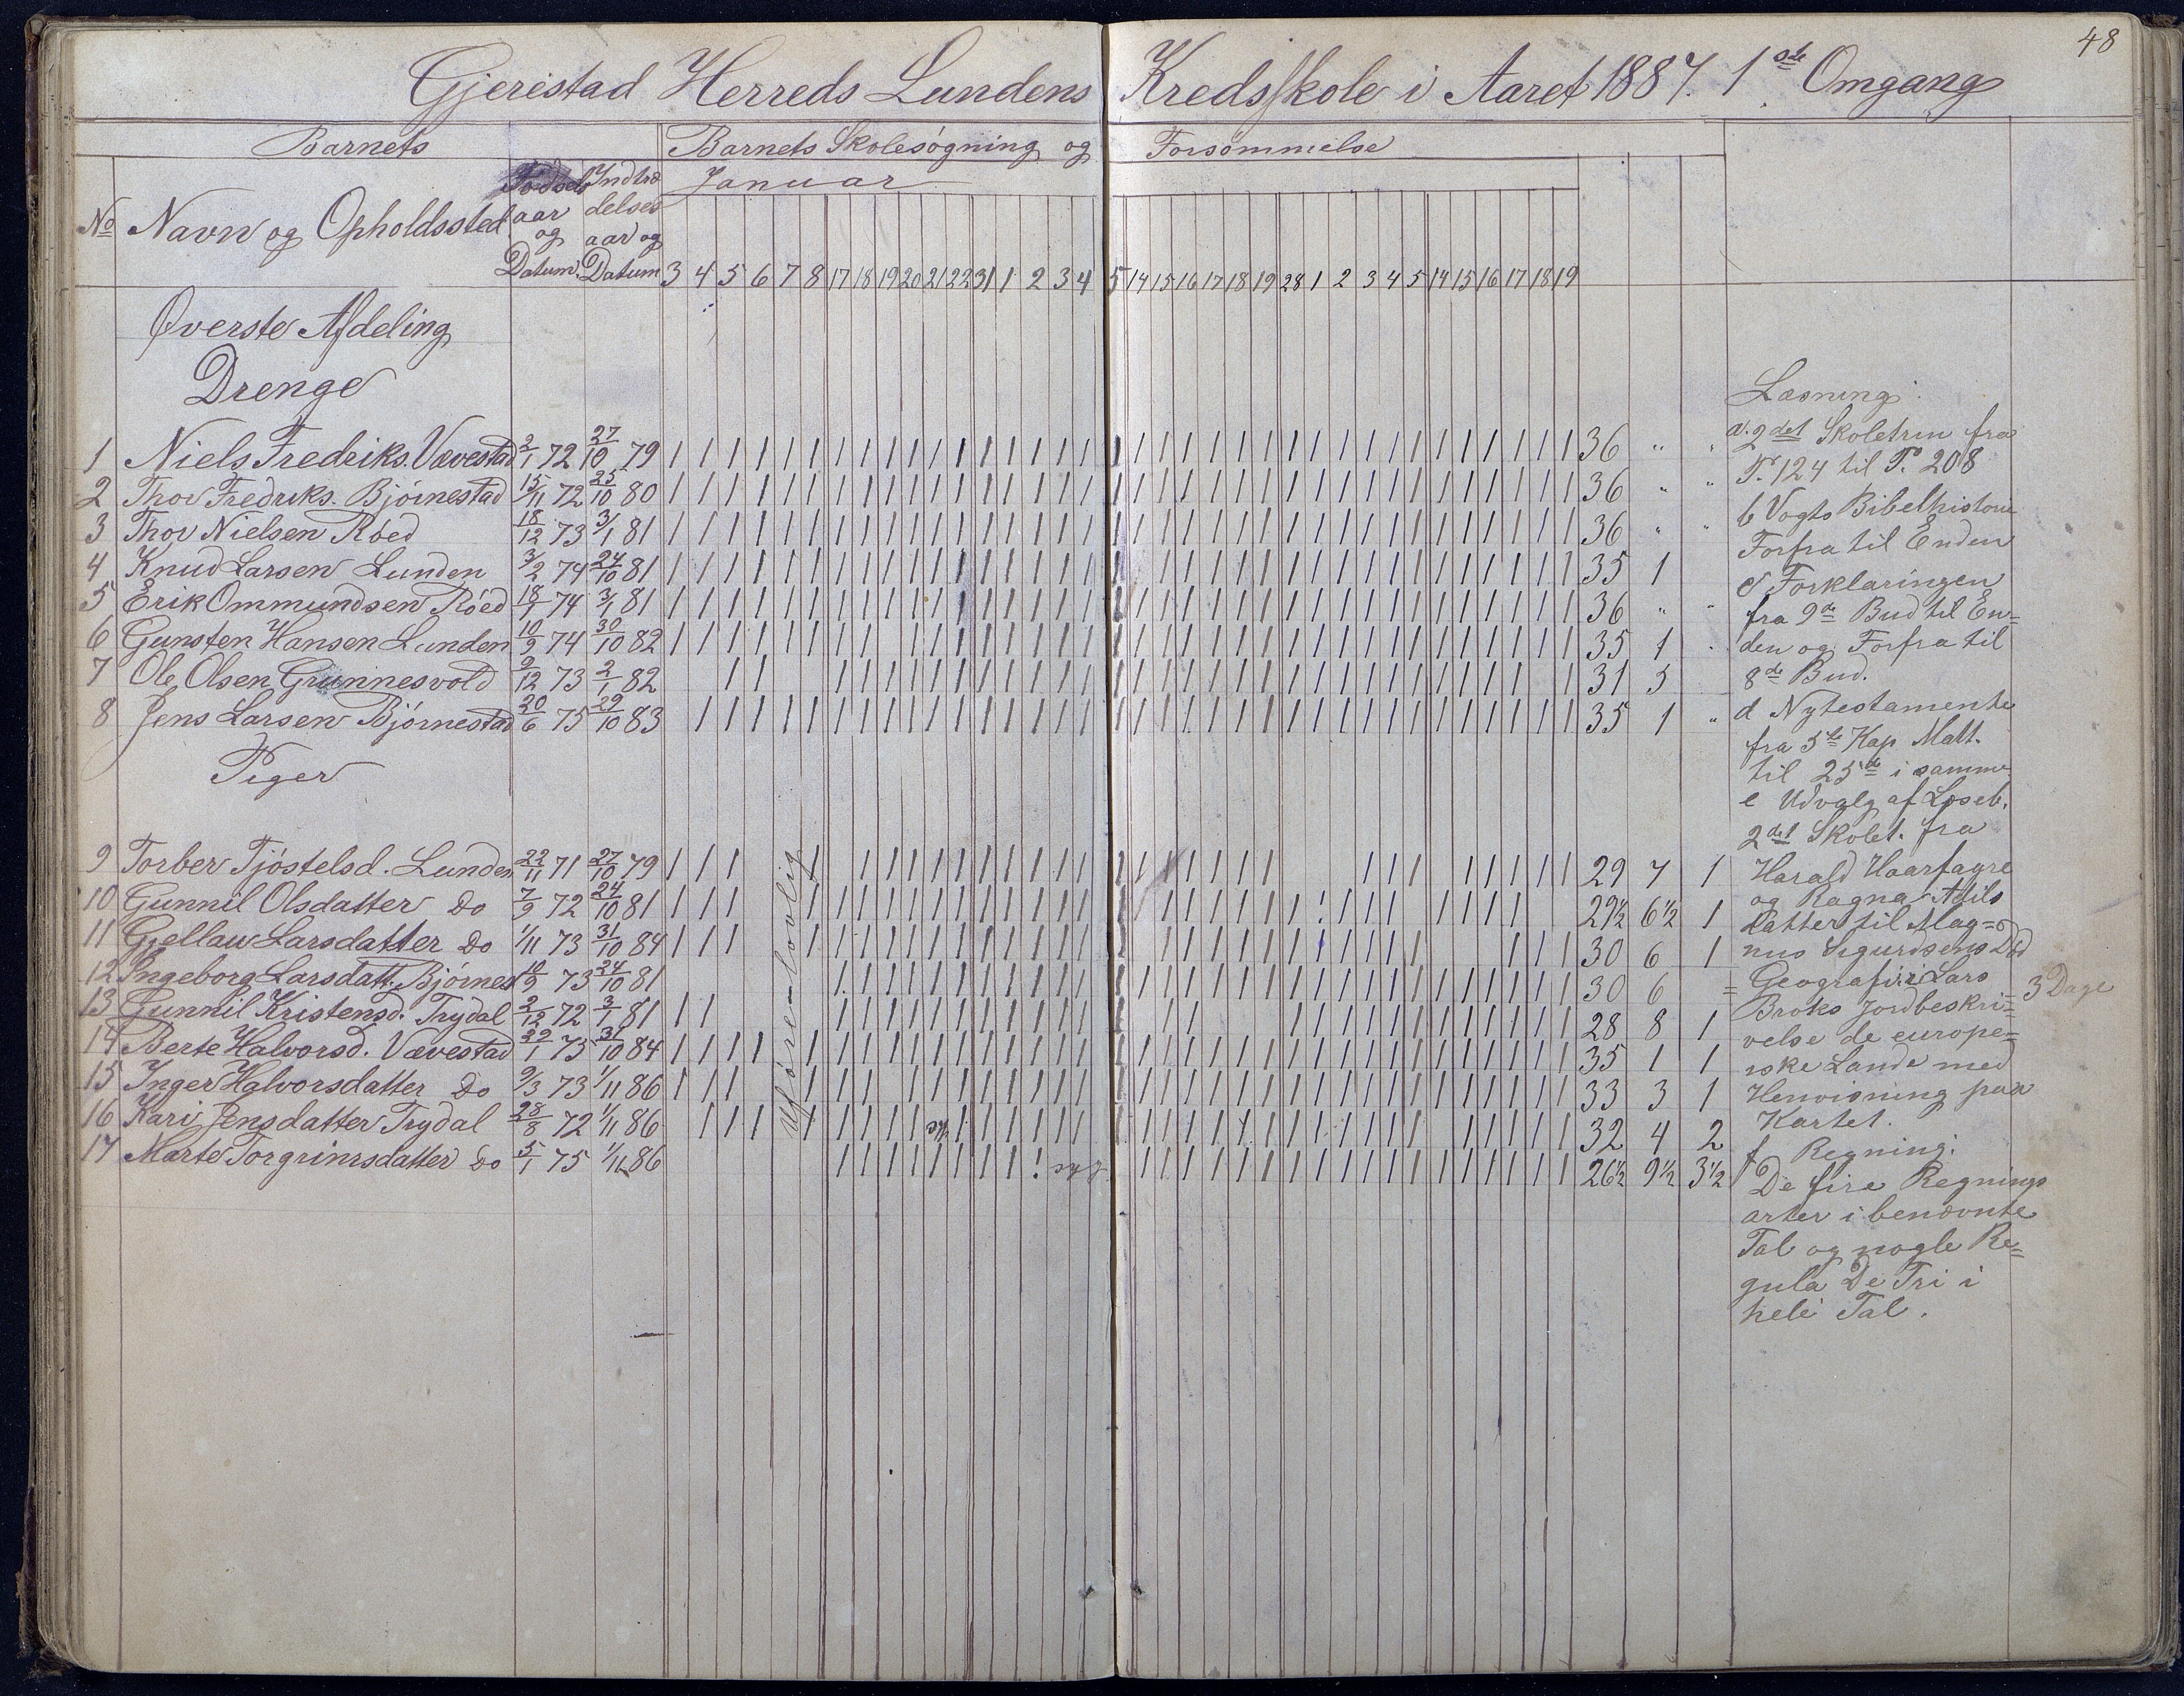 48
Gjerestad Herreds Lundens Kredsskole i Aaret 1887. 1ste Omgang
Barnets Barnets Skolesøgning og Forsømmelse
No Navn og Opholdssted Fødsels aar og Datum. Indtræ delses aar og Datum
Januar
3 4 5 6 7 8 17 18 19 20 21 22 31 1 2 3 4 5 14 15 16 17 18 19 28 1 2 3 4 5 14 15 16 17 18 19
Øverste Afdeling
Drenge
1 Niels Fredriks. Vævestad 2/1 72 27/10 79 36 " "
2 Thor Fredriks. Bjørnestad 15/11 72 25/10 80 36 " "
3 Thor Nielsen Røed 18/12 73 3/1 81 36 " "
4 Knud Larsen Lunden 3/2 74 24/10 81 35 1
5 Erik Ommundsen Røed 18/1 74 3/1 81 36 " "
6 Gunsten Hansen Lunden 10/9 74 30/10 82 35 1 "
7 Ole Olsen Grunnesvold 9/12 73 2/1 82 31 5
8 Jens Larsen Bjørnestad 20/6 75 29/10 83 35 1 "
Piger
9 Torber Tjøstelsd. Lunden 22/11 71 27/10 79 29 7 1
10 Gunnil Olsdatter Do 7/9 72 24/10 81 29½ 6½ 1
11 Gjellaw Larsdatter Do 1/11 73 31/10 84 30 6 1
12 Ingeborg Larsdatt. Bjørnes 10/9 73 24/10 81 30 6 =
13 Gunnil Kristensd. Trydal 2/12 72 3/1 81 28 8 1
14 Berte Halvorsd. Vævestad 29/1 75 31/10 84 35 1 1
15 Inger Halvorsdatter Do 9/3 73 1/11 86 33 3 1
16 Kari Jensdatter Trydal 28/8 72 1/11 86 syg 32 4 2
17 Marte Torgrimsdatter Do 5/1 75 1/11 86 syg 26½ 9½ 3½
Uføremlovlig
Læsning:
a. 2det Skoletrin fra
P. 124 til P. 208
b Vogts Bibelhistorie
Forfra til Enden
c Forklaringen
fra 9de Bud til En=
den og Forfra til
8de Bud.
d Nytestamente
fra 5te Kap Matt.
til 25de i samme
e Udvalg af Læseb.
2det Skolet. fra
Harald Haarfagre
og Ragna Adils
datter til Mag=
nus Sigurdsens Død
Geografi: Lars
Broks Jordbeskri= 3 Dage
velse de europe=
iske Lande med
Henvisning paa
Kartet.
f Regning:
De fire Regnings
arter i benævnte
Tal og nogle Re=
gula De Tri i
hele Tal.